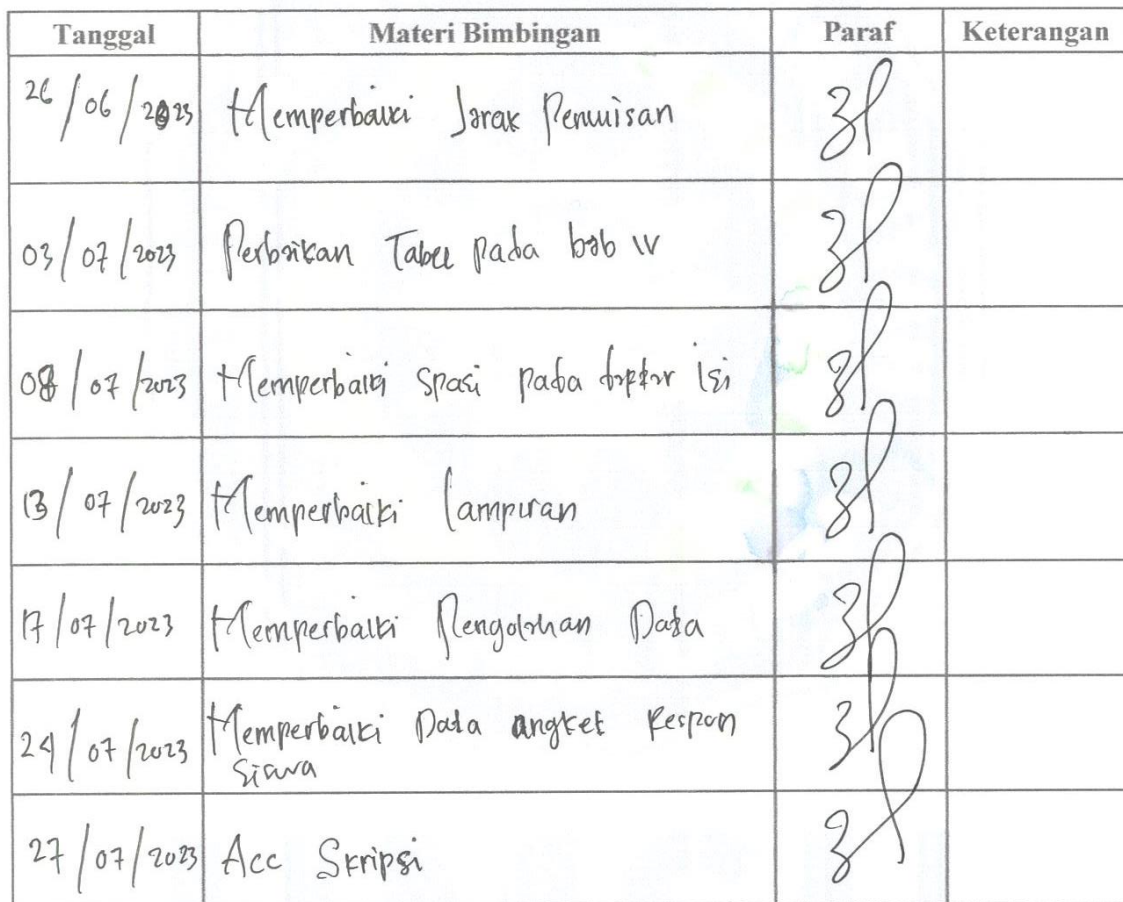 Tanggal Materi Bimbingan Paraf Keterangan
26/06/2023 Memperbaiki Jarak Penulisan
03/07/2023 Perbaikan Tabel pada bab IV
08/07/2023 Memperbaiki spasi pada daftar isi
13/07/2023 Memperbaiki lampiran
17/07/2023 Memperbaiki Pengolahan Data
24/07/2023 Memperbaiki Data angket Respon
Siswa
27/07/2023 Acc Skripsi